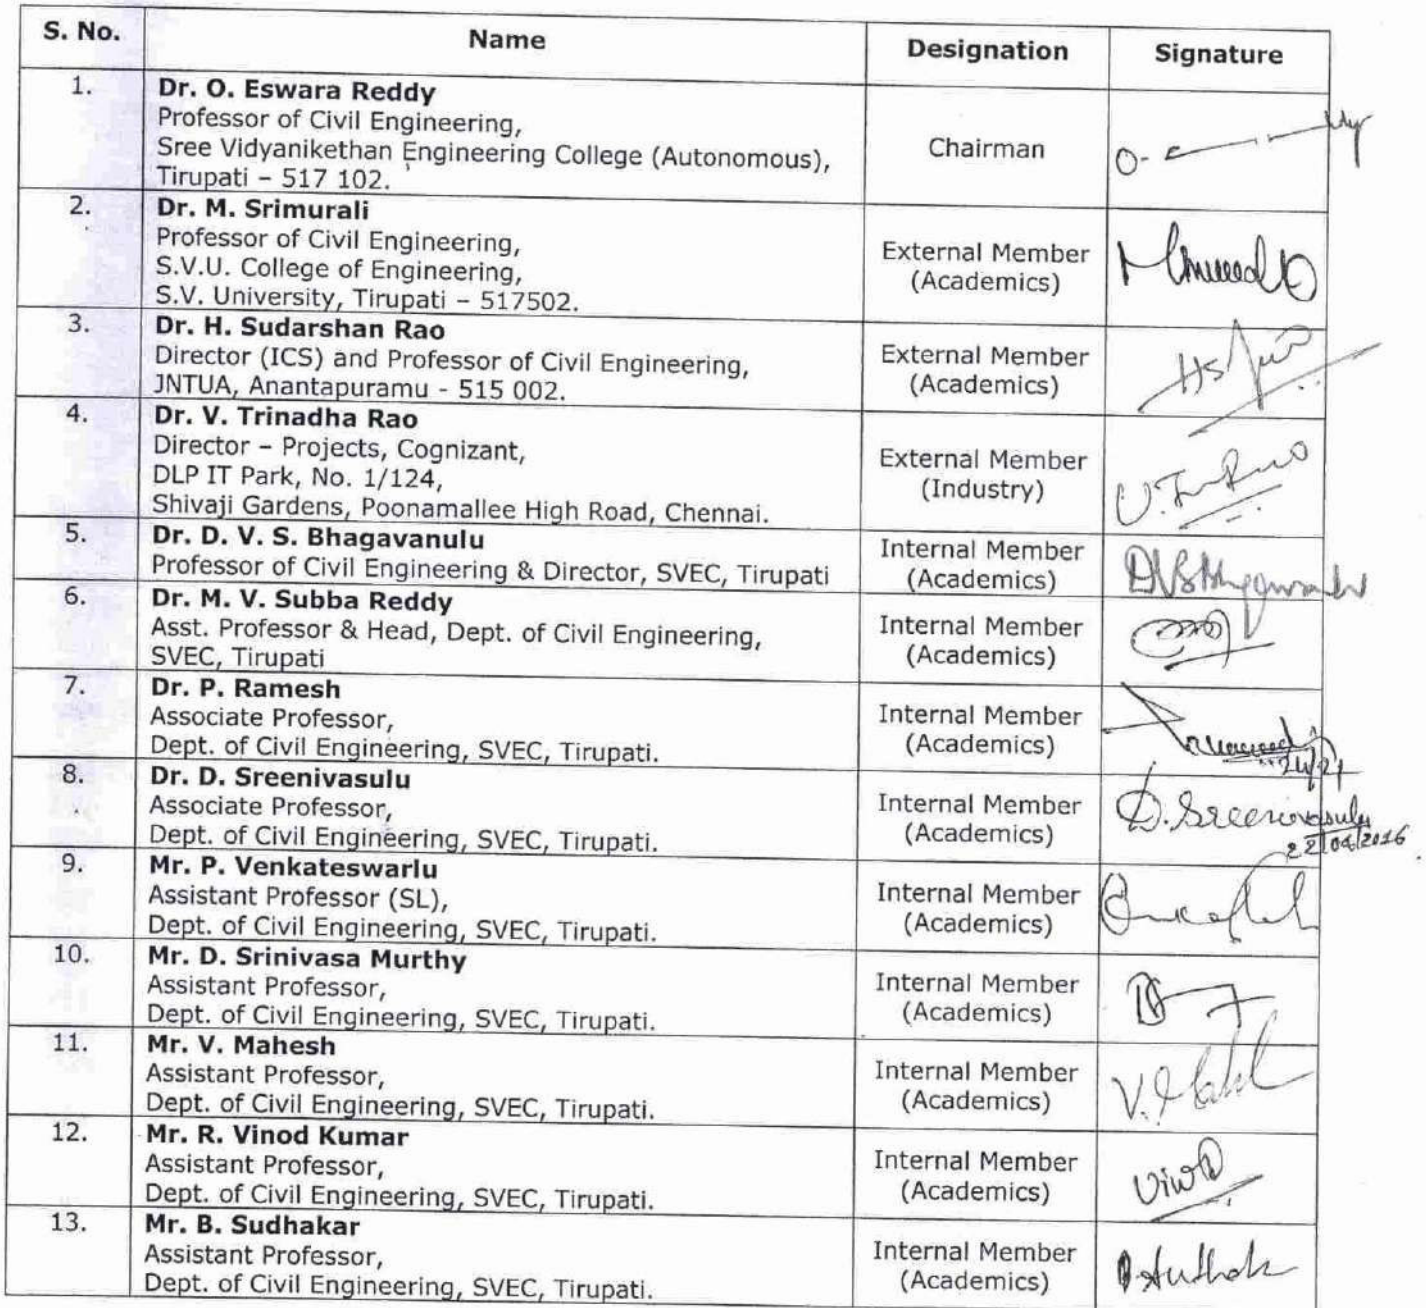 S. No. Name Designation Signature
1. Dr. O. Eswara Reddy
Professor of Civil Engineering,
Sree Vidyanikethan Engineering College (Autonomous),
Tirupati – 517 102.
Chairman
2. Dr. M. Srimurali
Professor of Civil Engineering,
S.V.U. College of Engineering,
S.V. University, Tirupati – 517502.
External Member
(Academics)
3. Dr. H. Sudarshan Rao
Director (ICS) and Professor of Civil Engineering,
JNTUA, Anantapuramu - 515 002.
External Member
(Academics)
4. Dr. V. Trinadha Rao
Director – Projects, Cognizant,
DLP IT Park, No. 1/124,
Shivaji Gardens, Poonamallee High Road, Chennai.
External Member
(Industry)
5. Dr. D. V. S. Bhagavanulu
Professor of Civil Engineering & Director, SVEC, Tirupati
Internal Member
(Academics)
6. Dr. M. V. Subba Reddy
Asst. Professor & Head, Dept. of Civil Engineering,
SVEC, Tirupati
Internal Member
(Academics)
7. Dr. P. Ramesh
Associate Professor,
Dept. of Civil Engineering, SVEC, Tirupati.
Internal Member
(Academics)
8. Dr. D. Sreenivasulu
Associate Professor,
Dept. of Civil Engineering, SVEC, Tirupati.
Internal Member
(Academics)
D. Sreenivasulu
9. Mr. P. Venkateswarlu
Assistant Professor (SL),
Dept. of Civil Engineering, SVEC, Tirupati.
Internal Member
(Academics)
10. Mr. D. Srinivasa Murthy
Assistant Professor,
Dept. of Civil Engineering, SVEC, Tirupati.
Internal Member
(Academics)
11. Mr. V. Mahesh
Assistant Professor,
Dept. of Civil Engineering, SVEC, Tirupati.
Internal Member
(Academics)
12. Mr. R. Vinod Kumar
Assistant Professor,
Dept. of Civil Engineering, SVEC, Tirupati.
Internal Member
(Academics)
13. Mr. B. Sudhakar
Assistant Professor,
Dept. of Civil Engineering, SVEC, Tirupati.
Internal Member
(Academics)